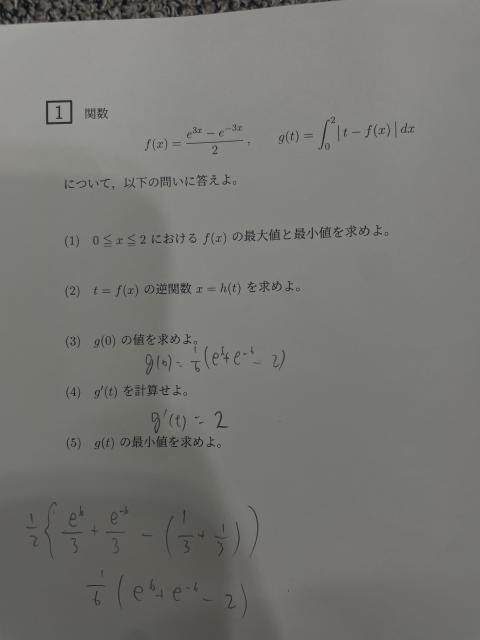 1 関数
f(x) = \frac{e^{3x} - e^{-3x}}{2}, g(t) = \int_0^2 | t - f(x) | dx
について，以下の問いに答えよ。
(1) 0 ≦ x ≦ 2 における f(x) の最大値と最小値を求めよ。
(2) t = f(x) の逆関数 x = h(t) を求めよ。
(3) g(0) の値を求めよ。
g(0) = \frac{1}{6} (e^6 + e^{-6} - 2)
(4) g'(t) を計算せよ。
g'(t) = 2
(5) g(t) の最小値を求めよ。
\frac{1}{2} { \frac{e^6}{3} + \frac{e^{-6}}{3} - ( \frac{1}{3} + \frac{1}{3} ) }
\frac{1}{6} ( e^6 + e^{-6} - 2 )